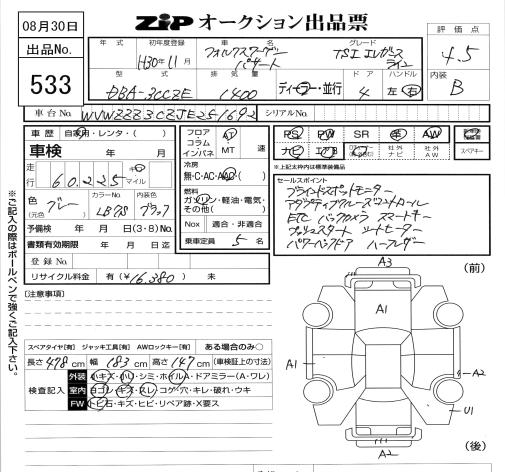 08月30日
ZIP オークション出品票
出品No.
533
評価点
4.5
内装
B
年式 初年度登録 車名 グレード
H30年11月 フォルクスワーゲン パサート TSI エレガンスライン
型式 排気量 ドア ハンドル
DBA-3CCZE 1400 ディーラー・並行 4 左・右
車台No. WVWZZZ3CZJE251692 シリアルNo.
車歴 自家用・レンタ・( )
車検 年 月
走行 60,225 キロ マイル
色 グレー (元色)
カラーNo. LB7S
内装色 ブラック
予備検 年 月 日(3・8)No.
書類有効期限 年 月 日迄
登録No.
リサイクル料金 有(¥16,380) 未
フロア コラム インパネ AT MT 速
冷房
無・C・AC・AAC・( )
燃料
ガソリン・軽油・電気・その他( )
Nox 適合・非適合
乗車定員 5 名
PS PW SR 革 AW
ナビ エアB 社外ナビ 社外AW スペアキー
*上記太枠内は標準装備品
セールスポイント
ブラインドスポットモニター
アダプティブクルーズコントロール
ETC バックカメラ スマートキー
プッシュスタート シートヒーター
パワーバックドア ハーフレザー
※ご記入の際はボールペンで強くご記入下さい。
[注意事項]
スペアタイヤ[有] ジャッキ工具[有] AWロックキー[有] ある場合のみ○
長さ 478 cm 幅 183 cm 高さ 147 cm (車検証上の寸法)
検査記入
外装 小キズ・小凹・シミ・ホイルA・ドアミラー(A・ワレ)
室内 ヨゴレ・キズ・スレ・コゲ・穴・キレ・破れ・ウキ
FW トビ石・キズ・ヒビ・リペア跡・X要ス
A3 (前)
A1
A1
A2
U1
A2 (後)